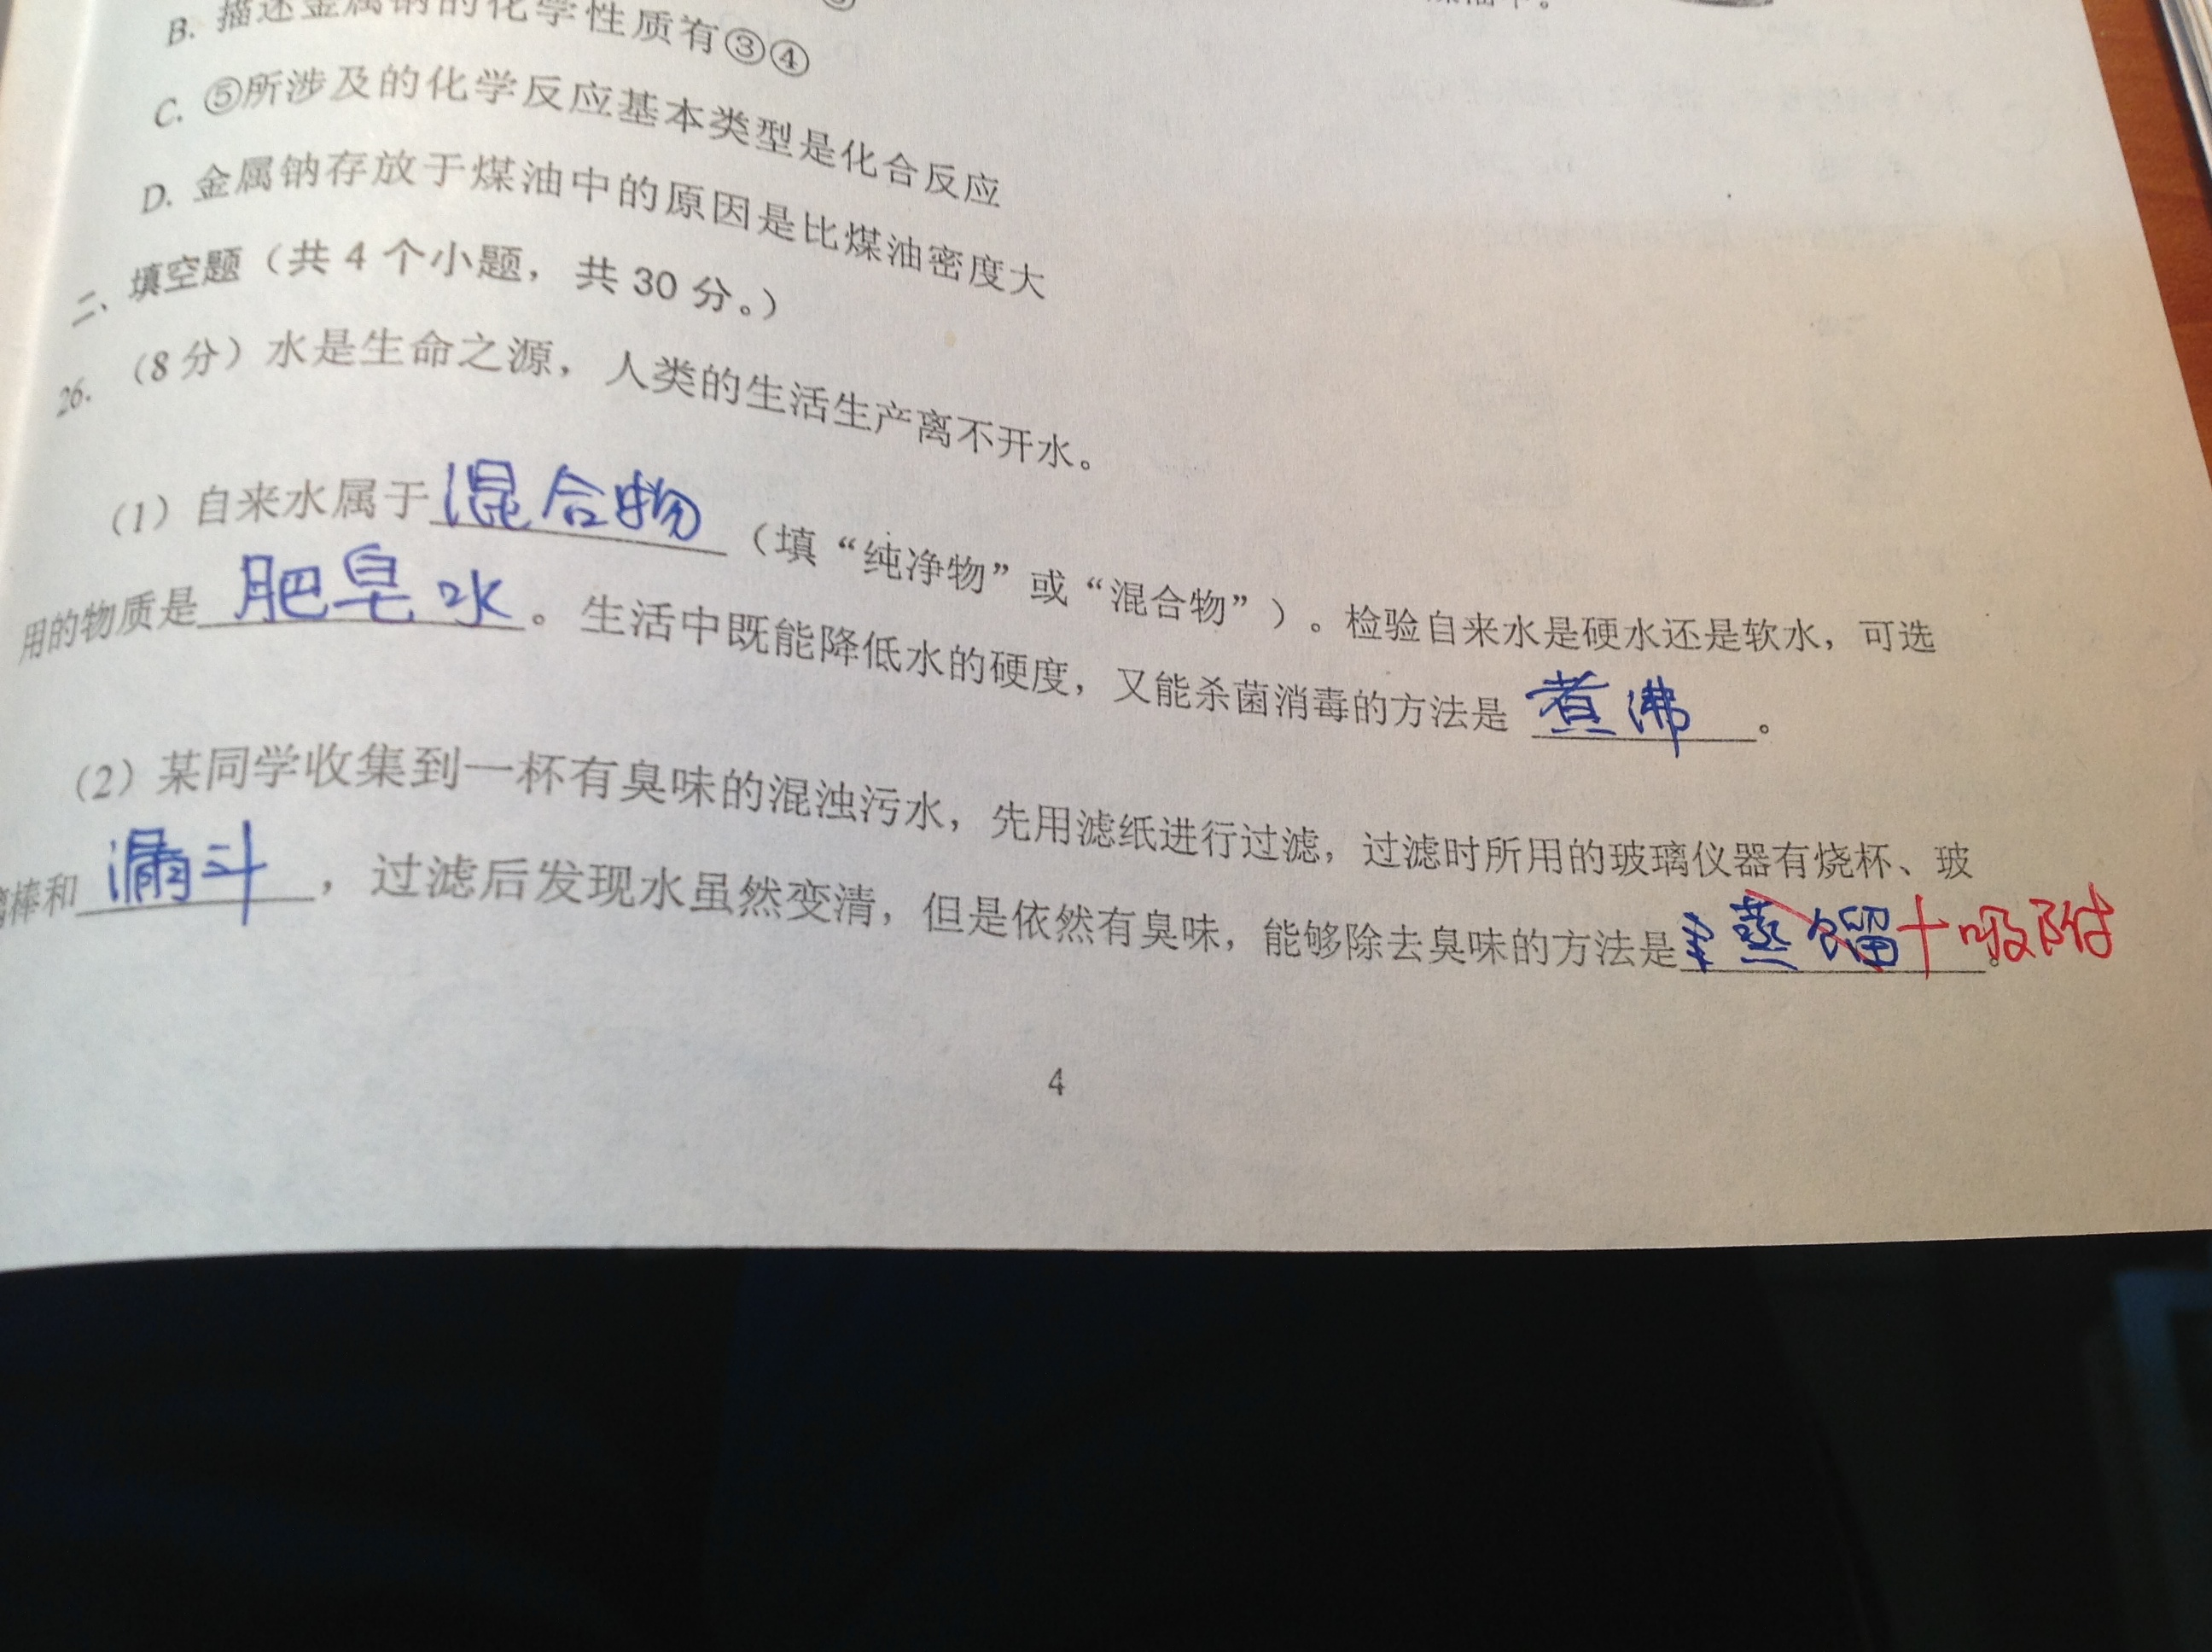 B. 描述金属钠的化学性质有③④
C. ⑤所涉及的化学反应基本类型是化合反应
D. 金属钠存放于煤油中的原因是比煤油密度大
二、填空题（共 4 个小题，共 30 分。）
26.（8 分）水是生命之源，人类的生活生产离不开水。
（1）自来水属于混合物（填“纯净物”或“混合物”）。检验自来水是硬水还是软水，可选
用的物质是肥皂水。生活中既能降低水的硬度，又能杀菌消毒的方法是煮沸。
（2）某同学收集到一杯有臭味的混浊污水，先用滤纸进行过滤，过滤时所用的玻璃仪器有烧杯、玻
璃棒和漏斗，过滤后发现水虽然变清，但是依然有臭味，能够除去臭味的方法是蒸馏十吸附。
4